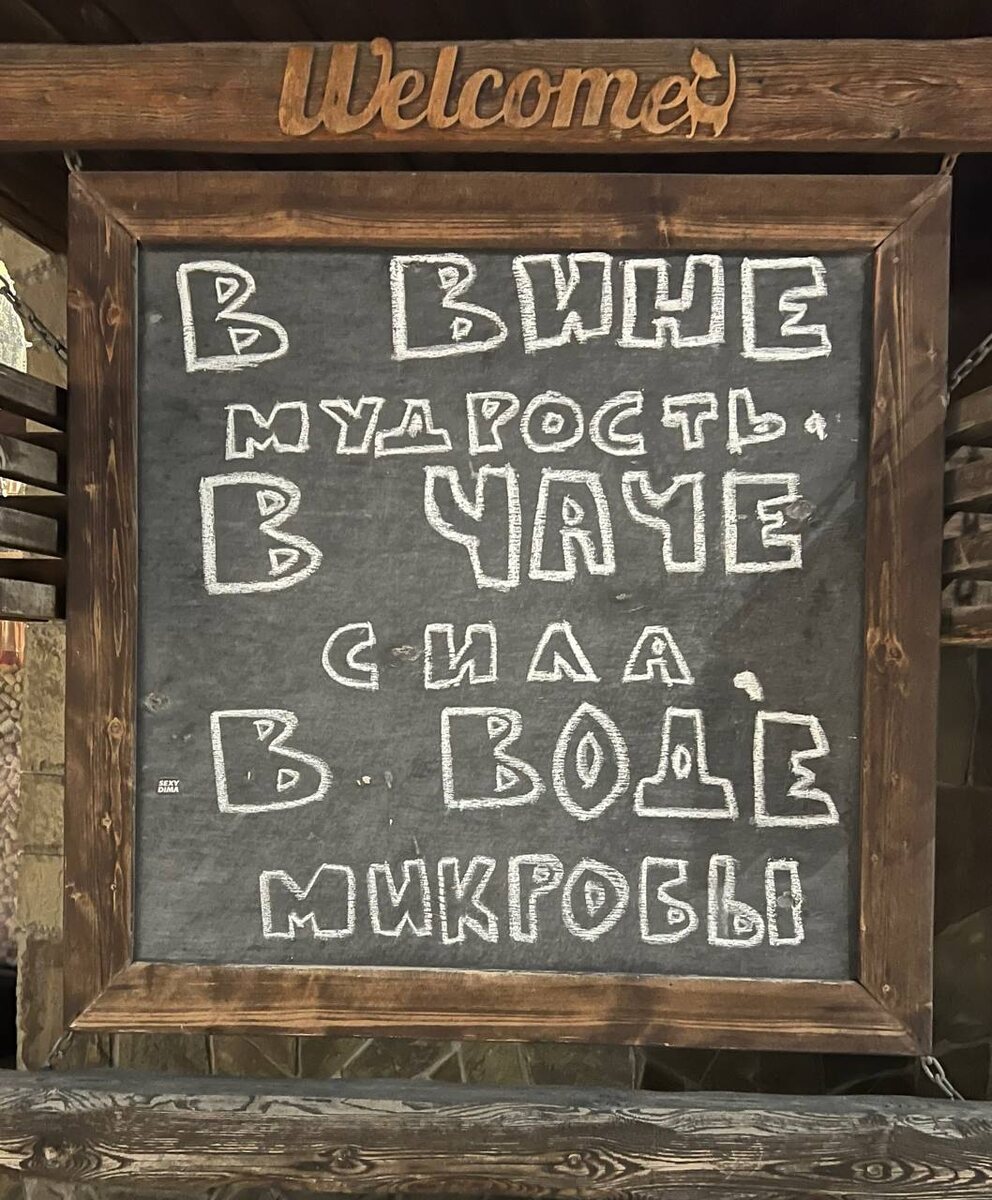 Welcome
В ВИНЕ
МУДРОСТЬ.
В ЧАЧЕ
СИЛА.
В ВОДЕ
SEXY
DIMA
МИКРОБЫ